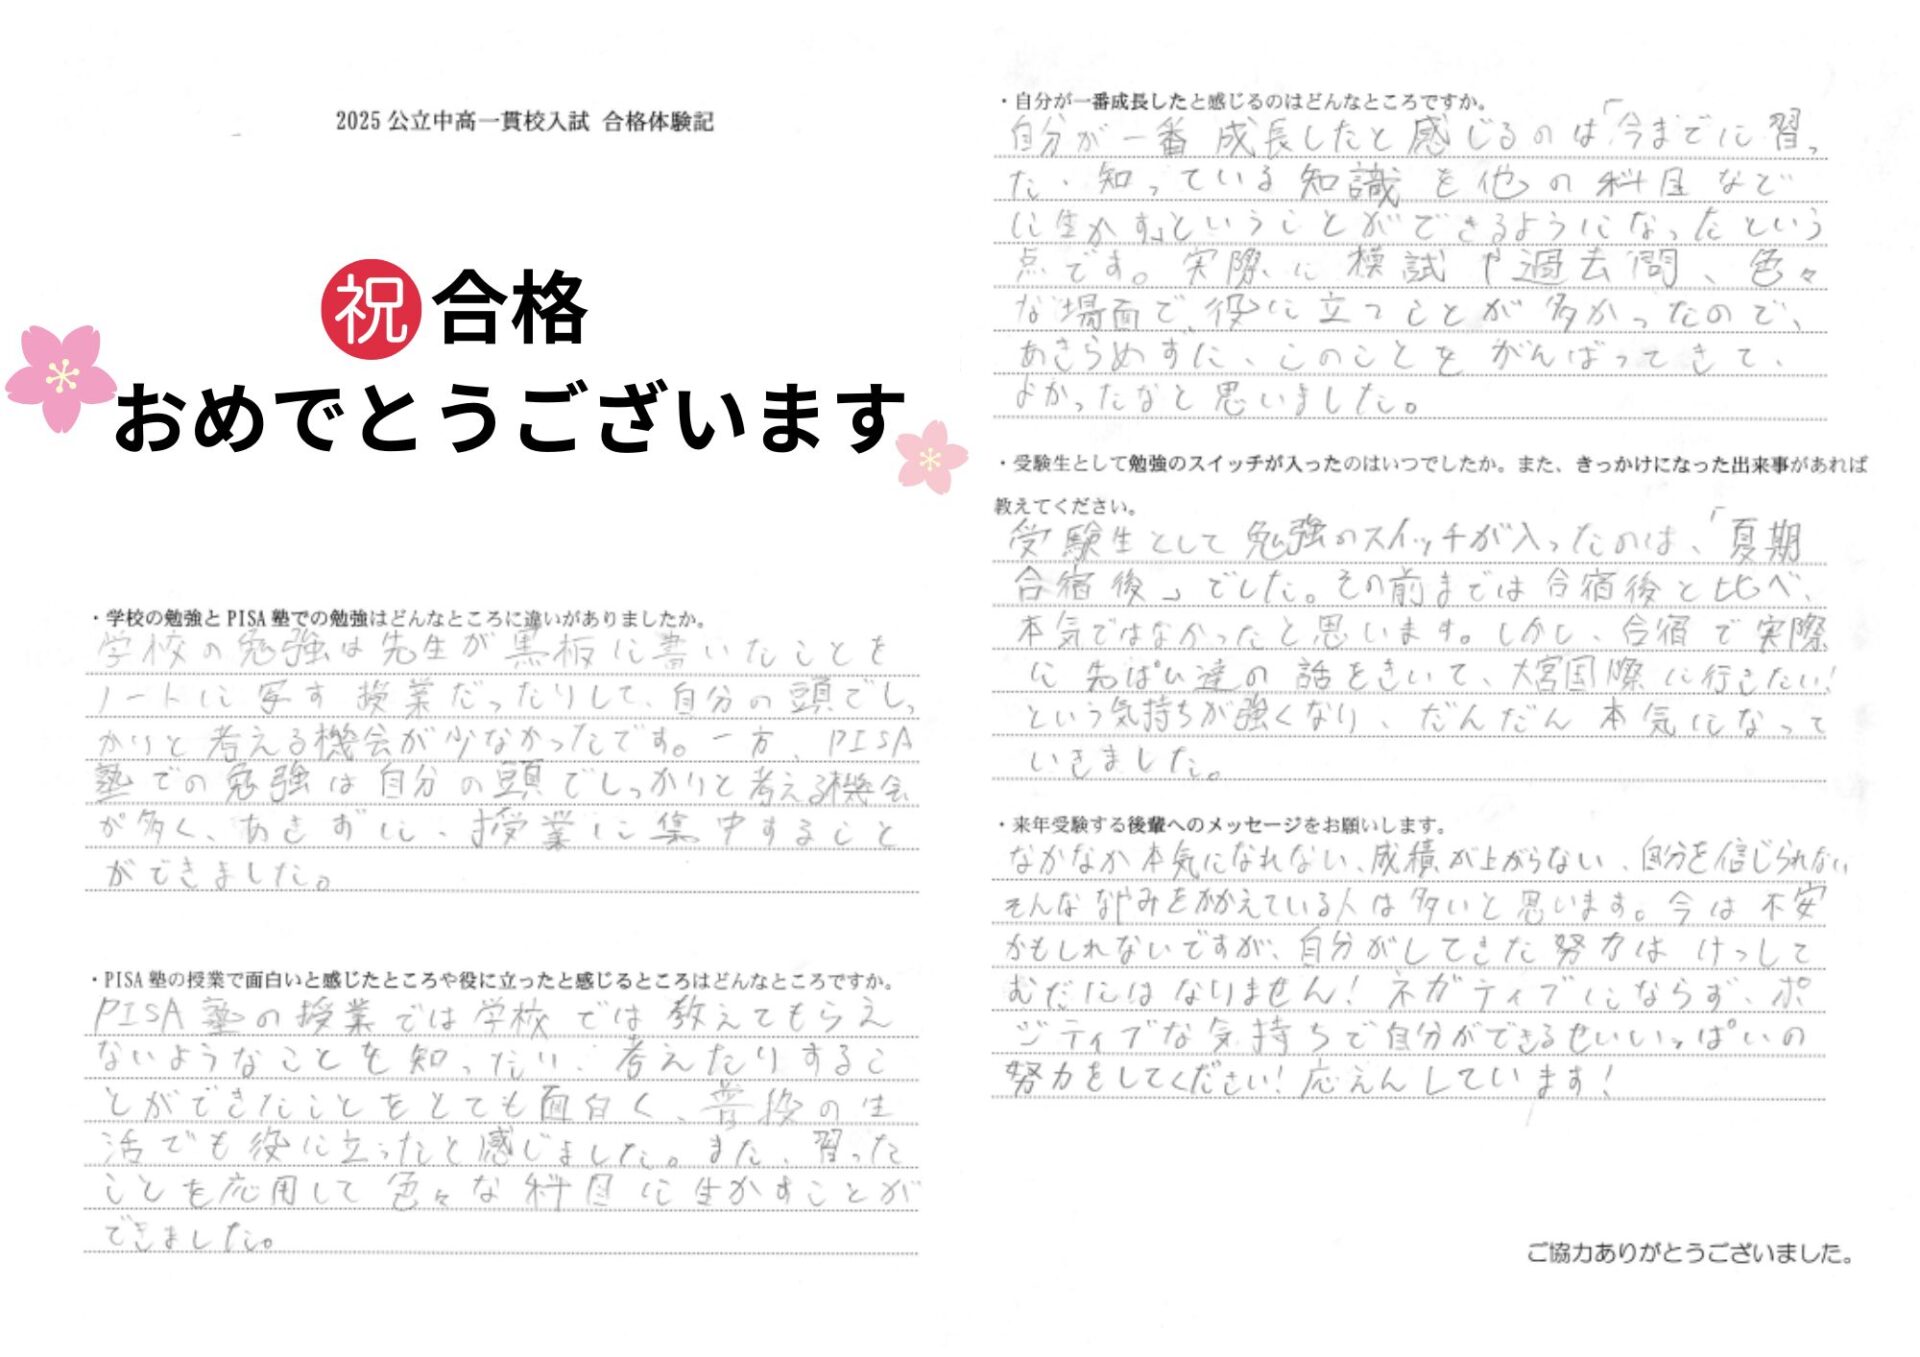 2025 公立中高一貫校入試 合格体験記
祝 合格
おめでとうございます
・学校の勉強と PISA 塾での勉強はどんなところに違いがありましたか。
学校の勉強は先生が黒板に書いたことを
ノートに写す授業だったりして、自分の頭でしっ
かりと考える機会が少なかったです。一方、PISA
塾での勉強は自分の頭でしっかりと考える機会
が多く、あきずに、授業に集中すること
ができました。
・PISA 塾の授業で面白いと感じたところや役に立ったと感じるところはどんなところですか。
PISA塾の授業では学校では教えてもらえ
ないようなことを知ったり、考えたりするこ
とができたことをとても面白く、普段の生
活でも役に立ったと感じました。また、習った
ことを応用して色々な科目に生かすことが
できました。
・自分が一番成長したと感じるのはどんなところですか。
自分が一番成長したと感じるのは「今までに習っ
た・知っている知識を他の科目などで
に生かす」ということができるようになったという
点です。実際に模試や過去問、色々
な場面で役に立つことが多かったので、
あきらめずに、このことをがんばってきて、
よかったなと思いました。
・受験生として勉強のスイッチが入ったのはいつでしたか。また、きっかけになった出来事があれば
教えてください。
受験生として勉強のスイッチが入ったのは、「夏期
合宿後」でした。その前までは合宿後と比べ、
本気ではなかったと思います。しかし、合宿で実際
に先ぱい達の話をきいて、大宮国際に行きたい!
という気持ちが強くなり、だんだん本気になって
いきました。
・来年受験する後輩へのメッセージをお願いします。
なかなか本気になれない、成積が上がらない、自分を信じられない
そんななやみをかかえている人は多いと思います。今は不安
かもしれないですが、自分がしてきた努力はけっして
むだにはなりません!ネガティブにならず、ポ
ジティブな気持ちで自分ができるせいいっぱいの
努力をしてください!応えんしています!
ご協力ありがとうございました。